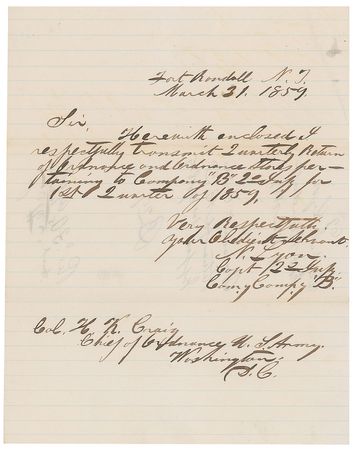 Fort Randall N. T.
March 31. 1859
Sir,
Herewith enclosed I
respectfully transmit Quarterly Return
of Ordnance and Ordnance stores per-
taining to Company "B" 2nd Inf. for
1st Quarter of 1859.
Very Respectfully
Your Obedient Servant
N. Lyon
Capt 2nd Inf.
Comg Compy "B."
Col. H. K. Craig
Chief of Ordnance U. S. Army.
Washington,
D. C.